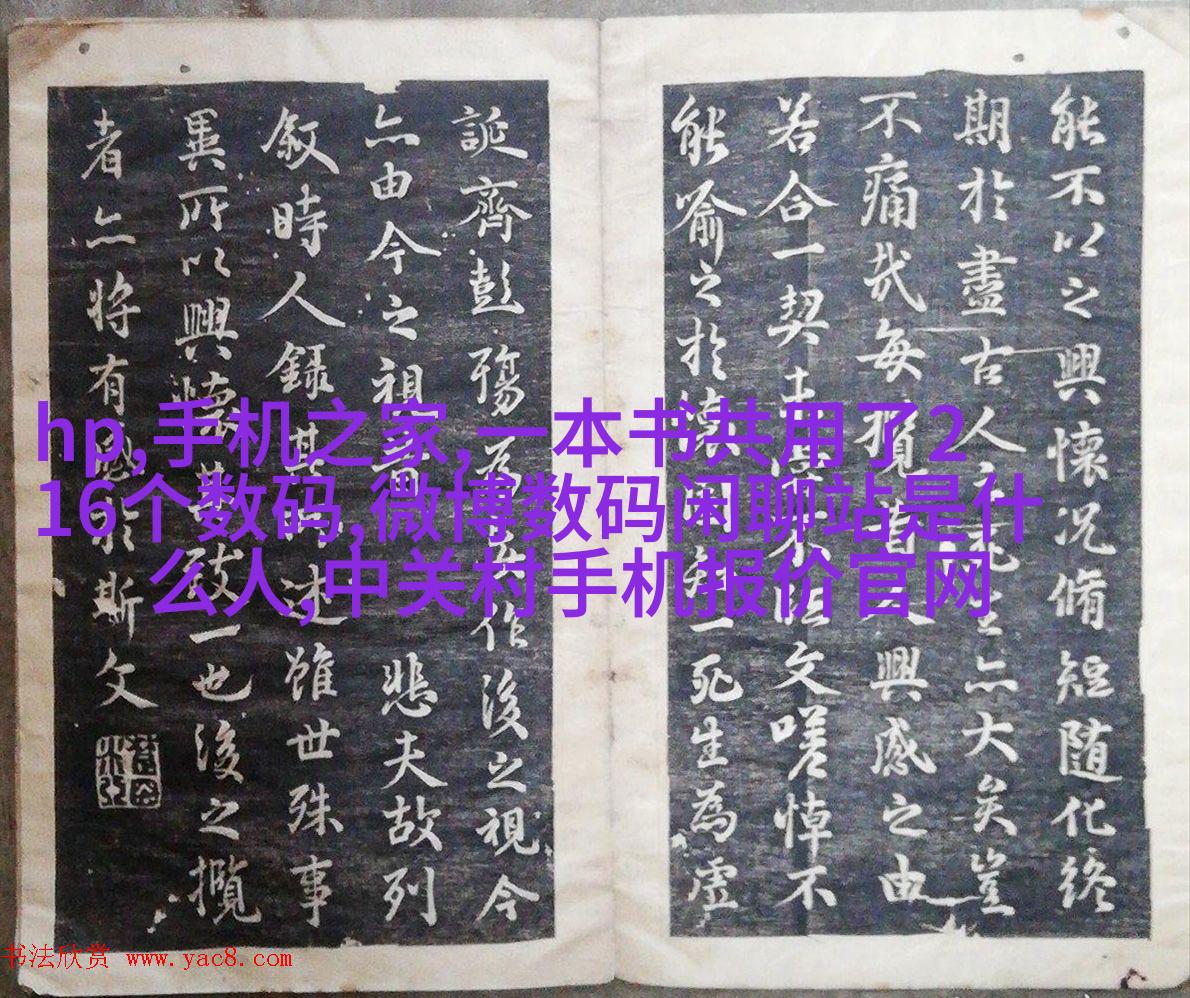 能不以之興懷況脩短随化終
期於盡古人云死生亦大矣豈
不痛哉每攬昔人興感之由
若合一契未嘗不臨文嗟悼不
能喻之於懷固知一死生為虛
誕齊彭殤為妄作後之視今
亦由今之視昔悲夫故列
敘時人錄其所述雖世殊事
異所以興懷其致一也後之攬
者亦將有感於斯文
hp,手机之家,一本书共用了2
16个数码,微博数码闲聊站是什
么人,中关村手机报价官网
书法欣赏 www.yac8.com